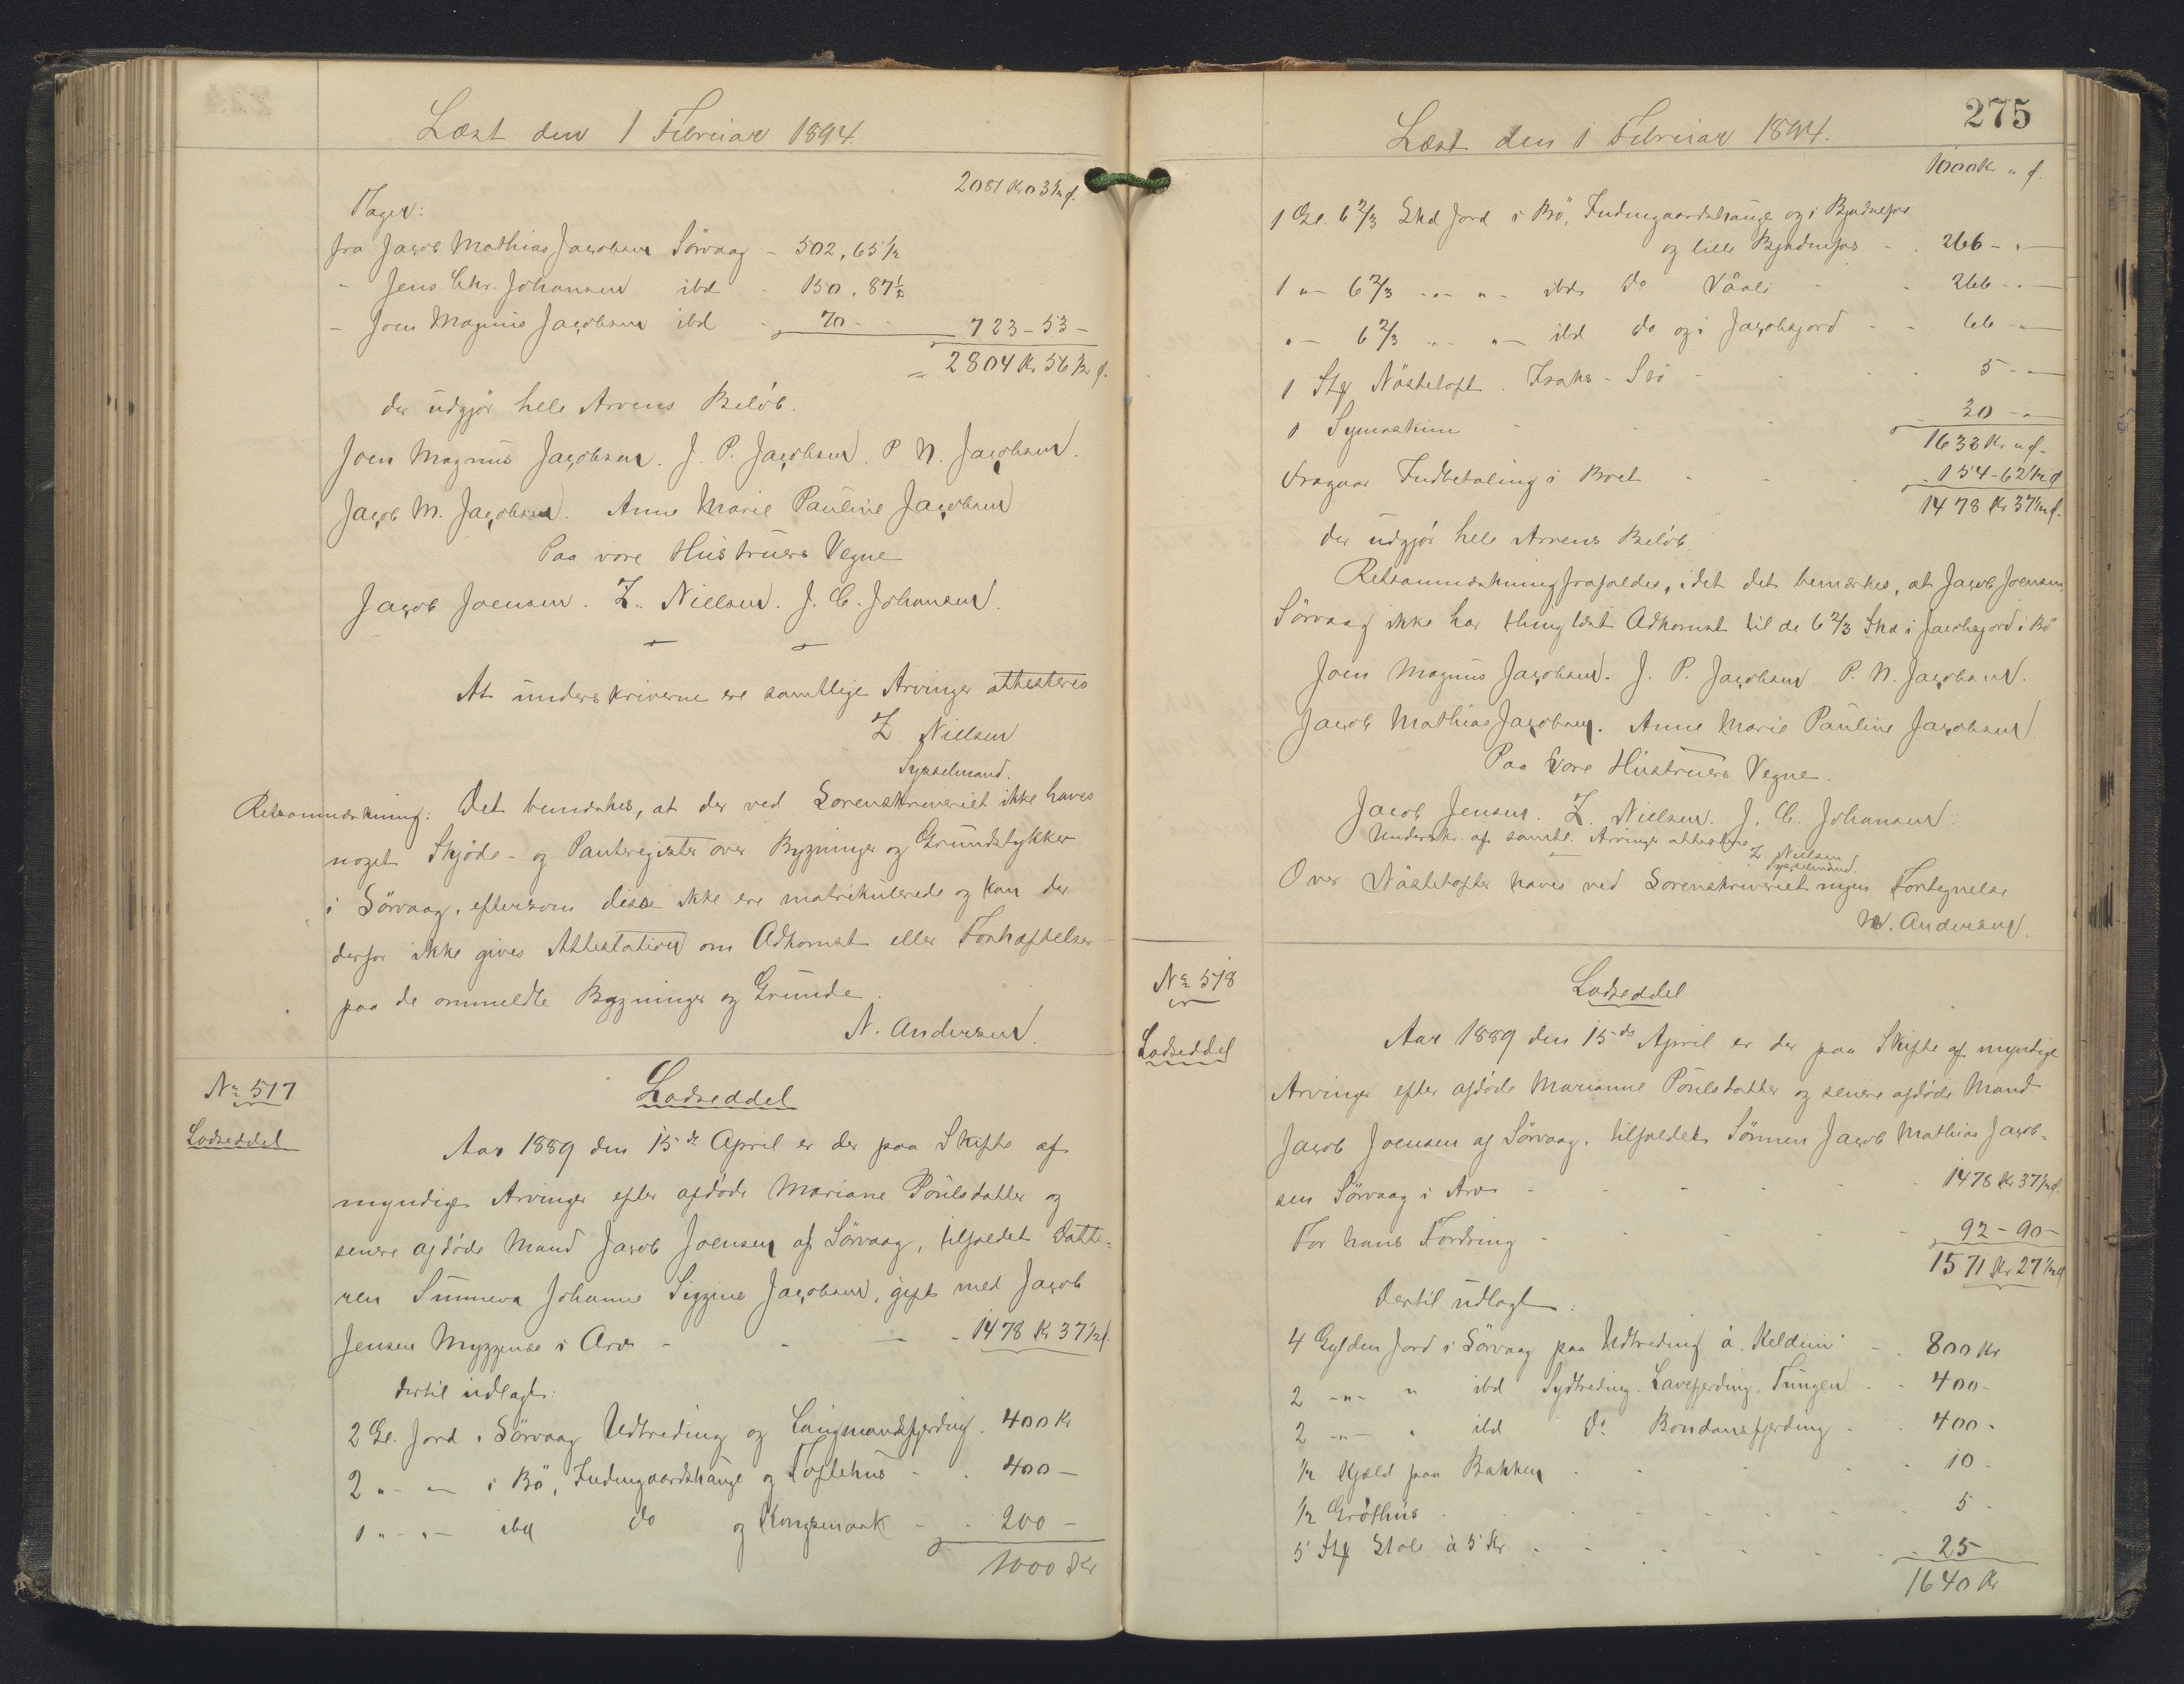 Læst den 1 Februar 1894.
2081 Kr 03½ ƒ.
Tager:
fra Jacob Mathias Jacobsen Sörvaag - 502,65½
- Jens Chr. Johansen ibd - 150,87½
- Joen Magnus Jacobsen ibd - 70 - 723-53-
= 2804 Kr 56½ ƒ.
der udgjör hele Arvens Belöb.
Joen Magnus Jacobsen. J. P. Jacobsen. P. N. Jacobsen.
Jacob M. Jacobsen. Anne Marie Pauline Jacobsen
Paa vore Hustruers Vegne
Jacob Joensen. Z. Nielsen. J. C. Johansen.
At underskriverne ere samtlige Arvinger attesteres
Z Nielsen
Sysselmand.
Retsanmærkning: Det bemærkes, at der ved Sorenskriveriet ikke haves
noget Skjöde- og Panteregister over Bygninger og Grundstykker
i Sörvaag, eftersom disse ikke ere matrikulerede og kan der
derfor ikke gives Attestation om Adkomst eller Forhæftelser
paa de ommeldte Bygninger og Grunde.
N. Andersen.
No 517
Lodseddel
Lodseddel
Aar 1889 den 15de April er der paa Skifte af
myndige Arvinger efter afdöde Mariane Poulsdatter og
senere afdöde Mand Jacob Joensen af Sörvaag, tilfaldet Datte-
ren Sunneva Johanne Siggine Jacobsen, gift med Jacob
Jensen Myggenæs i Arv - - - 1478 Kr 37½ ƒ
dertil udlagt:
2 Gl. Jord i Sörvaag Udtreding og Laugmandsfjerding. 400 Kr
2 " - " - i Bö, Indengaardshauge og Toftehus - . 400 -
1 " - " - ibd do og Kongsmark - . 200 -
1000 Kr
275
Læst den 1 Februar 1894.
1000 Kr " ƒ.
1 Gl. 6 2/3 Skd Jord i Bö, Indengaardshauge og i Bjadnefos
og lille Bjadnefos - . 266 - " -
1 " - 6 2/3 - " - " - ibd do Vaali - - 266 - " -
" - 6 2/3 - " - " - ibd do og i Jacobsjord - - 66 - " -
1 Stk Nöstetoft. Isaks- - 5 - " -
1 Symaskine - - - 30 - " -
1633 Kr " ƒ.
fragaar Indbetaling i Boet - - - 154-62½ ƒ
1478 Kr 37½ ƒ.
der udgjör hele Arvens Belöb.
Retsanmærkning frafaldes, idet det bemærkes, at Jacob Joensen,
Sörvaag ikke har thinglæst Adkomst til de 6 2/3 Skd i Jacobsjord i Bö
Joen Magnus Jacobsen. J. P. Jacobsen P. N. Jacobsen.
Jacob Mathias Jacobsen. Anne Marie Pauline Jacobsen.
Paa vore Hustruers Vegne.
Jacob Jensen. Z. Nielsen. J. C. Johansen.
Underskr. af samtl. Arvinger attesteres
Z. Nielsen
Sysselmand.
Over Nöstetofter haves ved Sorenskriveriet ingen Fortegnelse
N. Andersen.
No 518
Lodseddel
Lodseddel
Aar 1889 den 15de April er der paa Skifte af myndige
Arvinger efter afdöde Marianne Poulsdatter og senere afdöde Mand
Jacob Joensen af Sörvaag, tilfaldet Sönnen Jacob Mathias Jacob-
sen Sörvaag i Arv - - - - 1478 Kr 37½ ƒ.
For hans Fordring - - - - 92-90-
1571 Kr 27½ ƒ
dertil udlagt:
4 Gylden Jord i Sörvaag paa Udtreding á Kelduni - . 800 Kr
2 - " - " ibd Sydtreding. Lavefjerding. Tungen - . 400 -
2 - " - " ibd do Bondansfjerding - . 400 -
½ Kjæld paa Bakken - - - - 10 -
½ Gröthus - - - - 5 -
5 Stk Stole à 5 Kr - - - - 25
1640 Kr